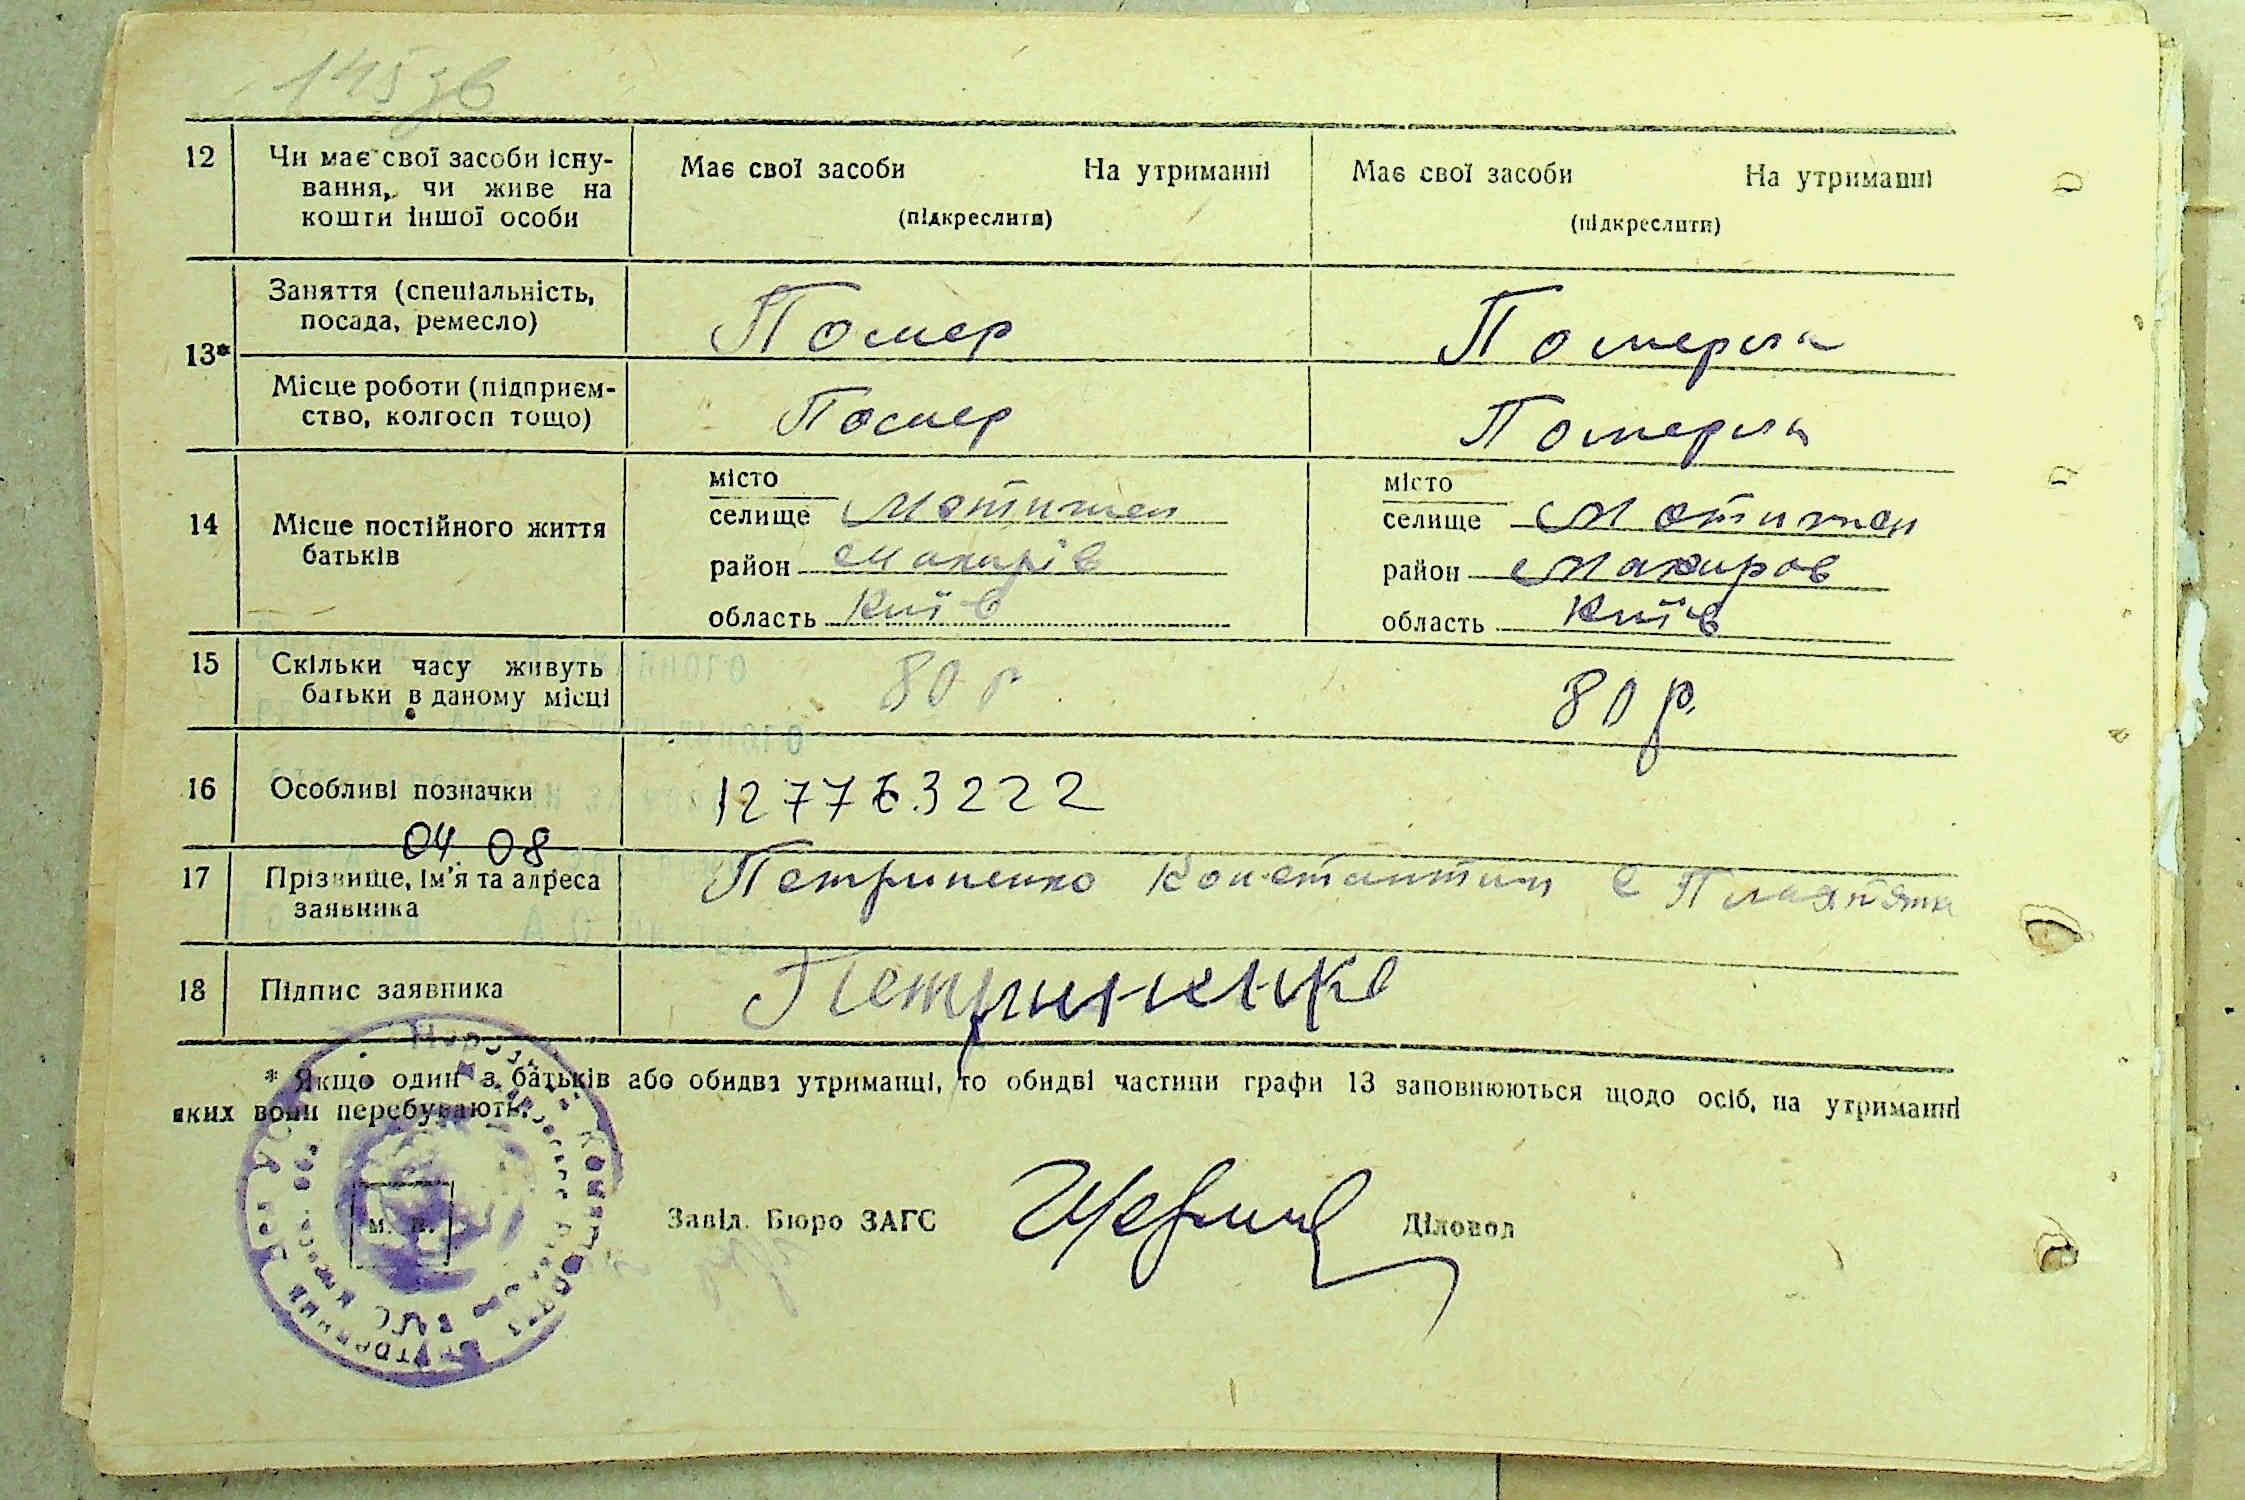 145зв
12 Чи має свої засоби існу- Має свої засоби На утриманні Має свої засоби На утриманні
вання, чи живе на
кошти іншої особи (підкреслити) (підкреслити)
Заняття (спеціальність,
посада, ремесло) Помер Померла
13*
Місце роботи (підприєм-
ство, колгосп тощо) Помер Померла
місто місто
14 Місце постійного життя селище Мотижен селище Мотижен
батьків район Макарів район Макаров
область Київ область Київ
15 Скільки часу живуть 80 р 80 р.
батьки в даному місці
16 Особливі позначки
04 08
17 Прізвище, ім'я та адреса Петриненко Константин с
заявника
18 Підпис заявника Петриненко
* Якщо один з батьків або обидва утриманці, то обидві частини графи 13 заповнюються щодо осіб, на утриманні
яких вони перебувають.
м. п. Завід. Бюро ЗАГС Діловод